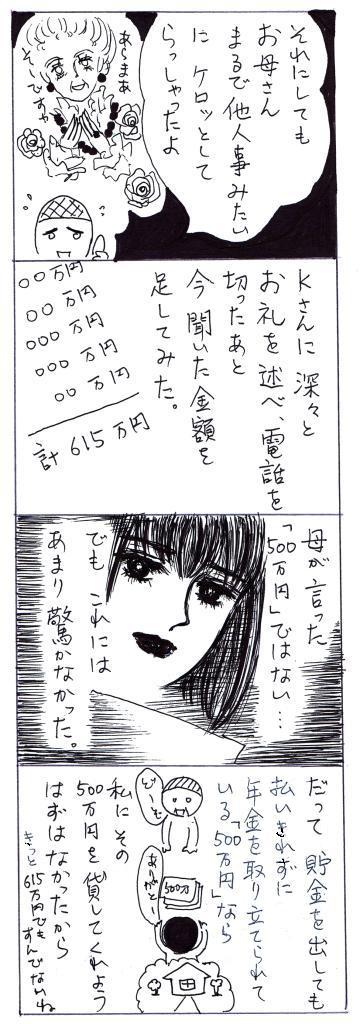 それにしても
お母さん
まるで他人事みたい
に ケロッとして
らっしゃったよ
あらまあ
そーですか
Kさんに 深々と
お礼を述べ、電話を
切ったあと
今聞いた金額を
足してみた。
○○万円
○○万円
○○○万円
○○○万円
○○万円
計 615万円
母が言った
「500万円」ではない…
でも これには
あまり驚かなかった。
だって 貯金を出しても
払いきれずに
年金を取り立てられて
いる「500万円」なら
どーも
ありがとー
500万
私に その
500万円を貸してくれよう
はずはなかったから
きっと 615万円でも
すんでないね